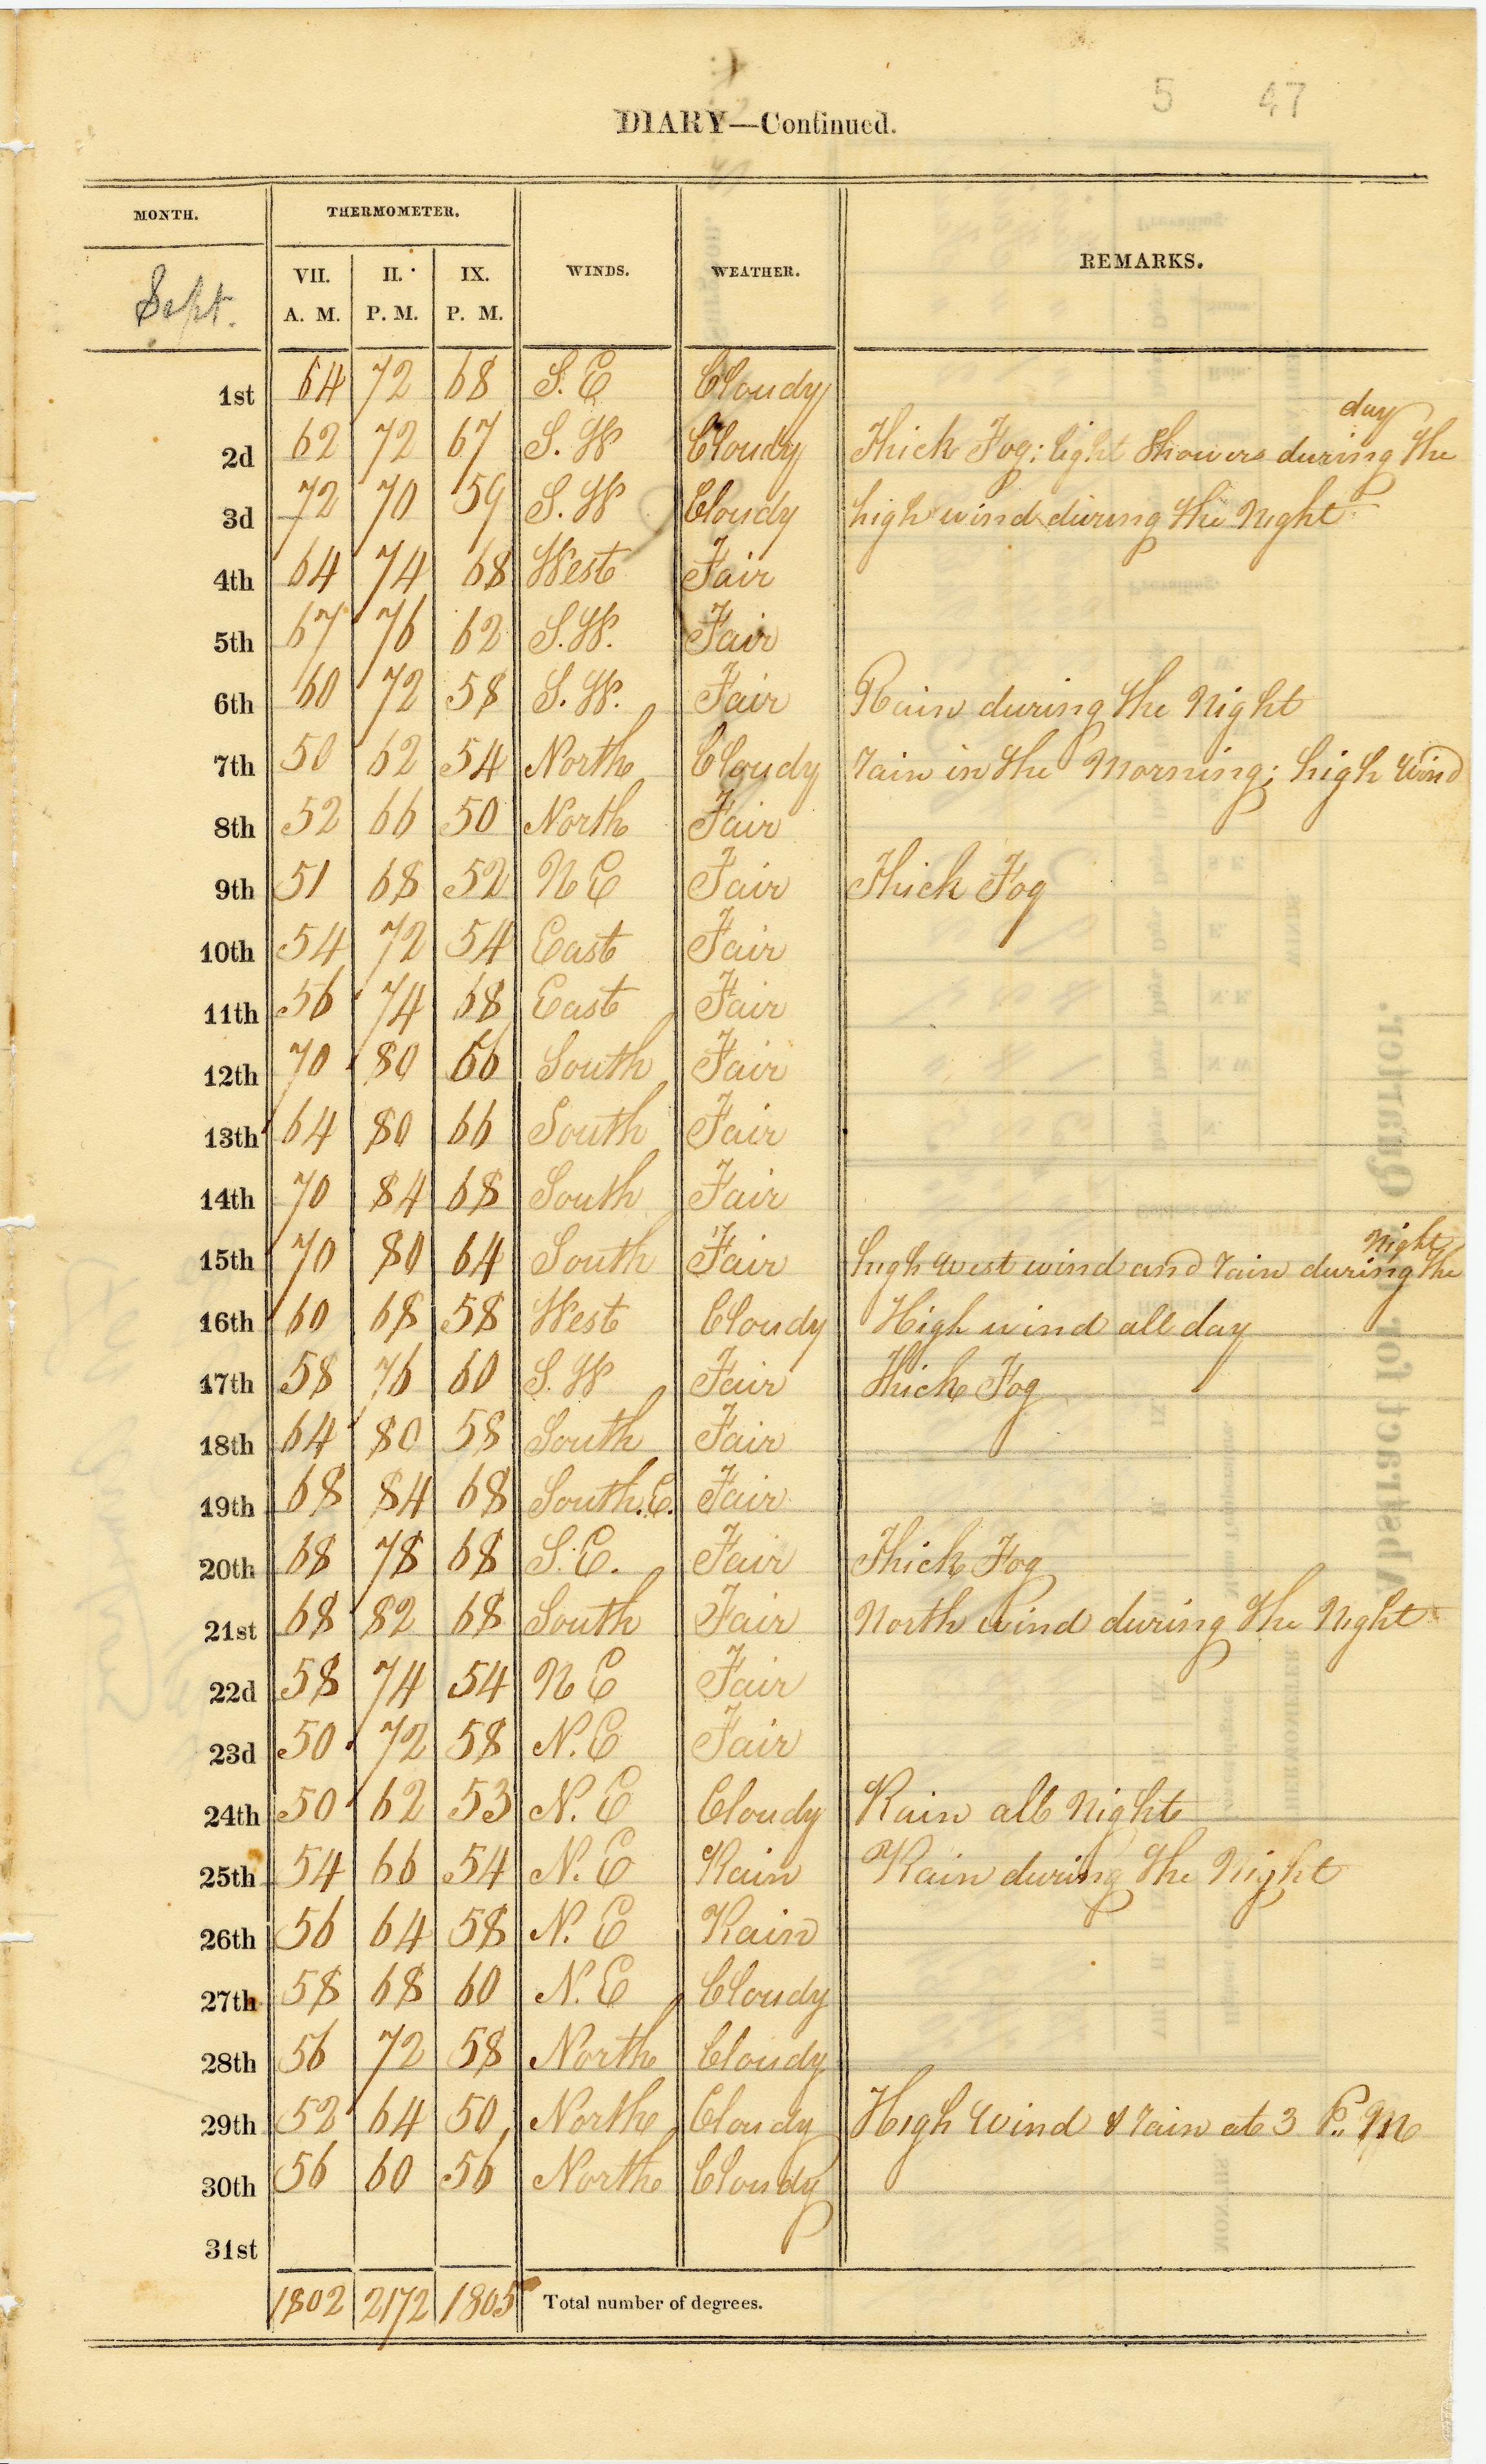 5 47
DIARY—Continued.
MONTH. THERMOMETER. WINDS. WEATHER. REMARKS.
Sept. VII. A. M. II. P. M. IX. P. M.
1st 64 72 68 S. E Cloudy
day
2d 62 72 67 S. W Cloudy Thick Fog; light Showers during the
3d 72 70 59 S. W Cloudy high wind during the Night
4th 64 74 68 West Fair
5th 67 76 62 S.W. Fair
6th 60 72 58 S. W. Fair Rain during the Night
7th 50 62 54 North Cloudy rain in the Morning; high wind
8th 52 66 50 North Fair
9th 51 68 52 N E Fair Thick Fog
10th 54 72 54 East Fair
11th 56 74 68 East Fair
12th 70 80 66 South Fair
13th 64 80 66 South Fair
14th 70 84 68 South Fair
Night
15th 70 80 64 South Fair high west wind and rain during the
16th 60 68 58 West Cloudy High wind all day
17th 58 76 60 S. W Fair Thick Fog
18th 64 80 58 South Fair
19th 68 84 68 South.E. Fair
20th 68 78 68 S.E. Fair Thick Fog
21st 68 82 68 South Fair North wind during the Night
22d 58 74 54 N E Fair
23d 50 72 58 N. E Fair
24th 50 62 53 N. E Cloudy Rain all Night
25th 54 66 54 N. E Rain Rain during the Night
26th 56 64 58 N. E Rain
27th 58 68 60 N. E Cloudy
28th 56 72 58 North Cloudy
29th 52 64 50 North Cloudy High Wind & rain at 3 P. M
30th 56 60 56 North Cloudy
31st
1802 2172 1805 Total number of degrees.